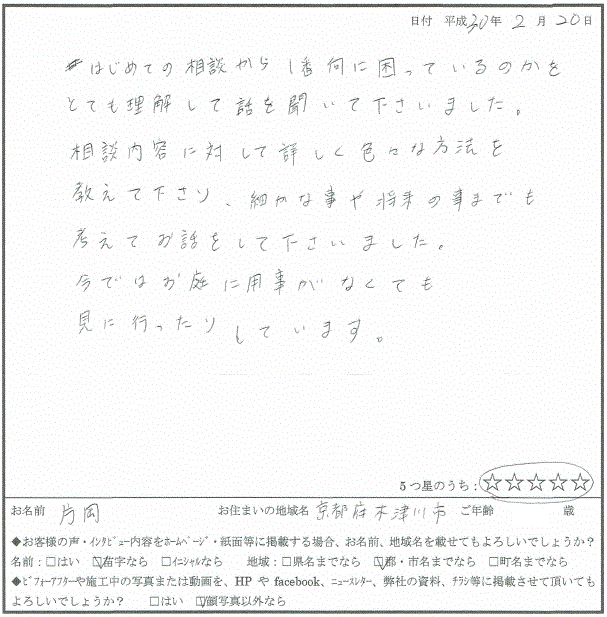 日付 平成30年 2月 20日
はじめての相談から1番何に困っているのかを
とても理解して話を聞いて下さいました。
相談内容に対して詳しく色々な方法を
教えて下さり、細かな事や将来の事までも
考えてお話をして下さいました。
今ではお庭に用事がなくても
見に行ったりしています。
5つ星のうち:☆☆☆☆☆
お名前 片岡 お住まいの地域名 京都府木津川市 ご年齢 歳
◆お客様の声・インタビュー内容をホームページ・紙面等に掲載する場合、お名前、地域名を載せてもよろしいでしょうか?
名前:□はい ☑苗字なら □イニシャルなら 地域:□県名までなら ☑郡・市名までなら □町名までなら
◆ビフォーアフターや施工中の写真または動画を、HP や facebook、ニュースレター、弊社の資料、チラシ等に掲載させて頂いても
よろしいでしょうか? □はい ☑顔写真以外なら